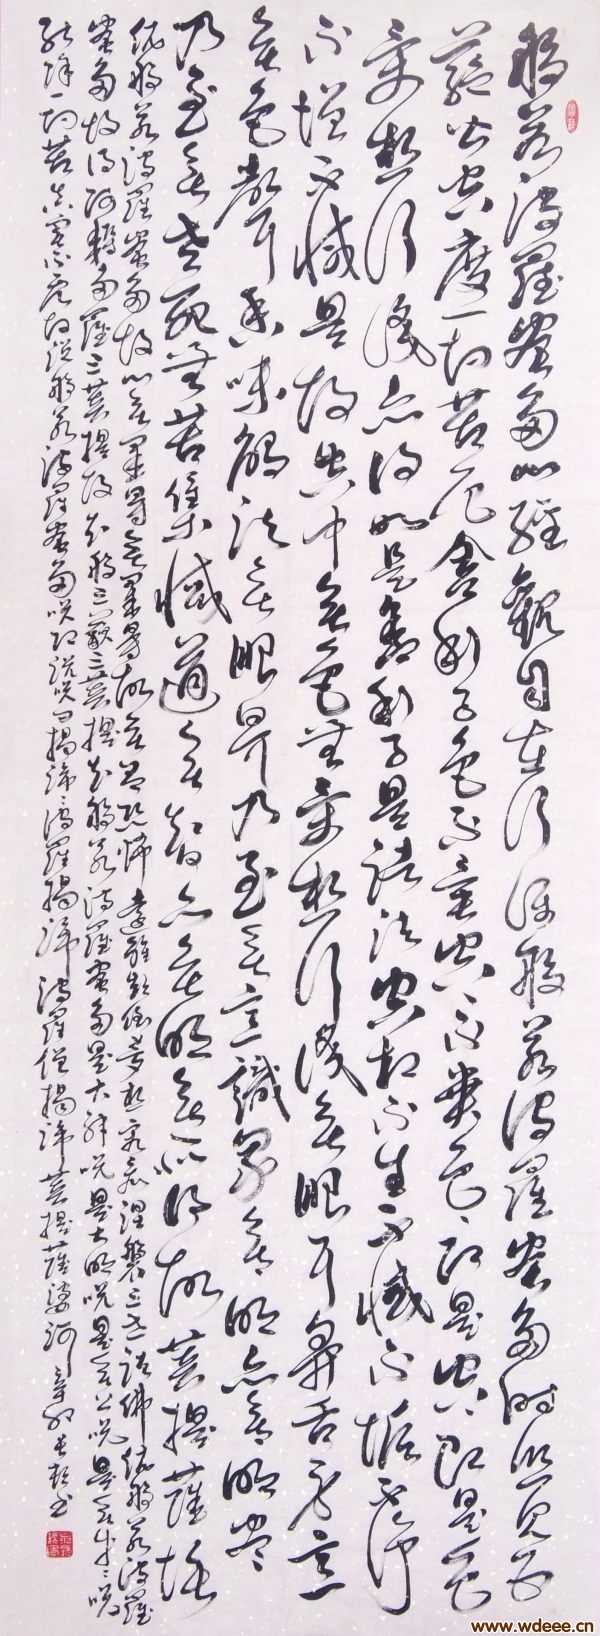 般若波羅蜜多心經觀自在行深般若波羅蜜多時照見五
蘊皆空度一切苦厄舍利子色不異空空不異色色即是空空即是色
受想行識亦復如是舍利子是諸法空相不生不滅不垢不淨
不增不減是故空中無色無受想行識無眼耳鼻舌身意
無色聲香味觸法無眼界乃至無意識界無明亦無明盡
乃至無老死無苦集滅道無智亦無得無所得故菩提薩埵
依般若波羅蜜多故心無罣礙無罣礙故無有恐怖遠離顛倒夢想究竟涅槃三世諸佛依般若波羅
蜜多故得阿耨多羅三菩提故知般三藐三菩提知般若波羅蜜多是大神咒是大明咒是無上咒是無等等咒
能除一切苦真實不虛故說般若波羅蜜多咒即說咒曰揭諦揭諦波羅揭諦波羅僧揭諦菩提薩婆訶 書
www.wdeee.cn